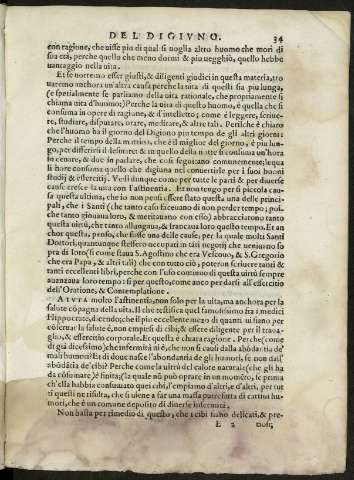 DEL DIGIVNO. 34
con ragione, che uisse piu di qual si uoglia altro huomo che mori di
sua età, perche quello che meno dormì & piu uegghiò, quello hebbe
uantaggio nella uita.
Et se uorremo esser giusti, & diligenti giudici in questa materia, tro
uaremo anchora un'altra causa perche la uita di questi sia piu lunga,
(e spetialmente se parliamo della uita rationale, che propriamente si
chiama uita d'huomo:) Perche la uita di questo huomo, è quella che si
consuma in opere di ragione, & d'intelletto; come è leggere, scriue-
re, studiare, disputare, orare, meditare, & altre tali. Perilche è chiaro
che l'huomo ha il giorno del Digiuno piu tempo de gli altri giorni:
Perche il tempo della mattina, che è il miglior del giorno, è piu lun-
go, per differirsi il desinare: & in quello della notte si consuma un'hora
in cenare, & due in parlare, che cosi seguitano comunemente: lequa
li hore consuma quello che digiuna nel conuertirle per i suoi buoni
studij & essercitij. Vedi dunque come per tutte le parti & per diuerse
cause cresce la uita con l'astinentia. Et non tengo per si piccola cau-
sa questa ultima, che io non pensi esser stato questa una delle princi-
pali, che i Santi (che tanto caso faceuano di non perder tempo, poi-
che tanto giouaua loro, & meritauano con esso) abbracciarono tanto
questa uirtù, che tanto allungaua, & francaua loro quello tempo. Et an
chor questa, penso, che fusse una delle cause, per la quale molti Santi
Dottori, quantunque stessero occupati in tāti negotij che ueniuno so
pra di loro (si come staua S. Agostino che era Vescouo, & S. Gregorio
che era Papa, & altri tali) che con tutto ciò, poteron scriuere tanti &
tanti eccellenti libri, perche con l'uso continuo di questa uirtù sempre
auanzaua loro tempo: si per questo, come anco per darsi all'essercitio
dell'Oratione, & Contemplatione.
AIVTA molto l'astinentia, non solo per la uita, ma anchora per la
salute cōpagna della uita. Il che testifica quel famosissimo fra i medici
Hippocrate, dicendo; che il piu eccellente mezo di quanti ui siano per
cōseruar la salute è, non empiersi di cibi; & essere diligente per il traua-
glio, & essercitio corporale. Et questa è chiara ragione. Perche (come
di già dicessimo) che infermità ui è, che non si causi dalla abōdātia de'
mali humori? Et di doue nasce l'abondantia de gli humori, se non dall'
abōdātia de' cibi? Perche come la uirtù del calore naturale (che gli ha
da cōsumare) è finita; (la quale nō può oprare in un momēto, se prima
ch'ella habbia consumato quei cibi, l'empiamo d'altri, e d'altri, per tut
ti questi ne risulta, che si uiene a far una massa putrefatta di cattiui hu-
mori, che è un comune deposito di diuerse infermità.
Non basta per rimedio di questo, che i cibi siano delicati, & pre-
E 2 tiosi;